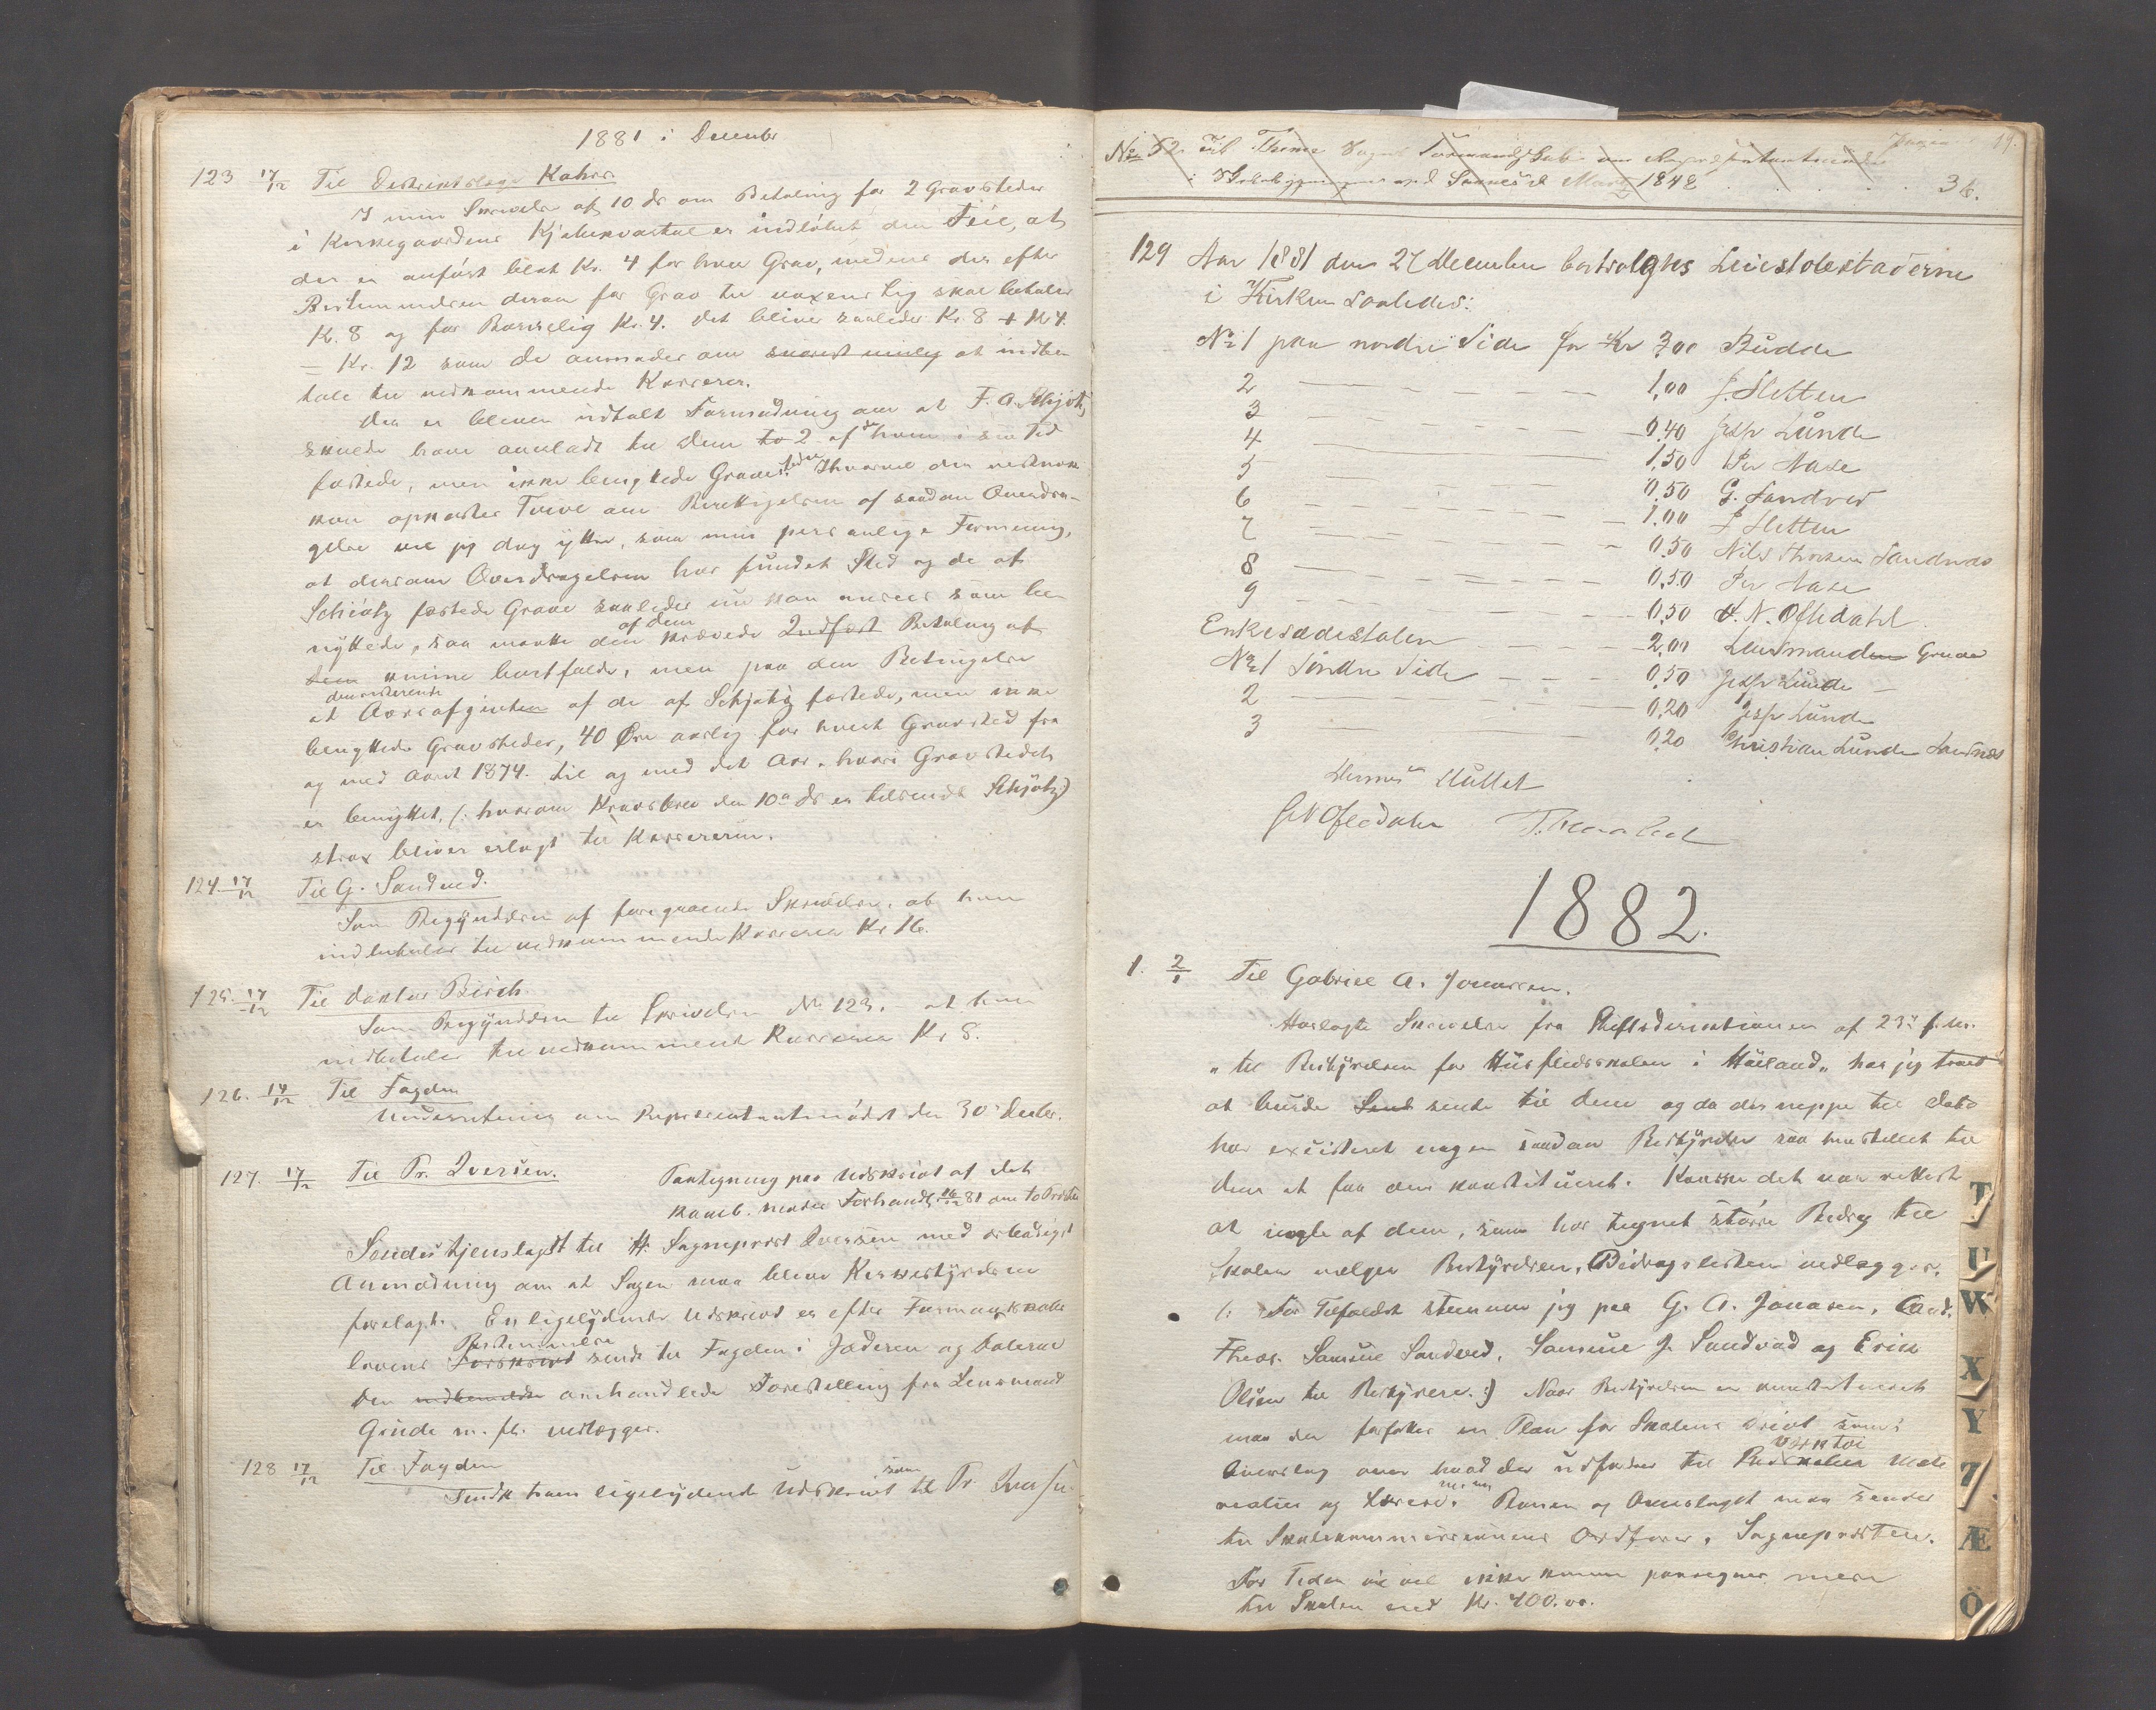 1881 i Decembr
123 17/12 Til Distriktslæge Kahrs.
I min Skrivelse af 10 ds om Betaling for 2 Gravsteder
i Kirkegaardens Kjøbekvartal er indløbet den Feil, at
der er anført blot Kr. 4 for hver Grav, medens der efter
Bestemmelsen derom for Grav til voxens Lig skal betales
Kr. 8 og for Barnelig Kr. 4. Det bliver saaledes Kr. 8 + Kr 4.
= Kr. 12 som De anmodes om snarest mulig at indbe
tale til vedkommende Kasserer.
Der er bleven udtalt Formodning om at F. A. Schjøtz
skulde have overladt til Dem to 2 af de ham i sin Tid
fæstede, men ikke benyttede Gravesteder. Ihvorvel der vistnok
kan opkastes Tvivl om Berettigelsen af saadan Overdra-
gelse vil jeg dog ytre, som min personlige Formening,
at dersom Overdragelsen har fundet Sted og de af
Schiøtz fæstede Grave saaledes nu kan ansees som be-
nyttede, saa maatte den af Dem krævede Indfæst Betaling af
Dem kunne bortfalde, men paa den Betingelse
at den resterende Aarsafgiften af de af Schjøtz fæstede, men ikke
benyttede Gravsteder, 40 Øre aarlig for hvert Gravsted fra
og med Aaret 1874. til og med det Aar, hvori Gravstedet
er benyttet, (: hvorom Kravsbrev den 10de ds er tilsendt Schjøtz)
strax bliver erlagt til Kassereren.
124. 17/12 Til G. Sandved.
Som Begyndelsen af foregaaende Skrivelse, at han
indbetaler til vedkommende Kasserer Kr 16.
125. 17/12 Til Doktor Birch.
Som Begyndelsen til Skrivelse No 123. at han
indbetaler til vedkommende Kasserer Kr 8.
126. 17/12 Til Fogden
Underretning om Representantmødet den 30' Decbr.
127. 17/12 Til Pr. Iversen. Paategning paa Udskrivt af det
komb. Forhandl. 16/12 81 om
Sendes tjenstligst til Hr. Sogneprest Iversen med ærbødigst
Anmodning om at Sagen maa blive Kirkestyrelsen
forelagt. En ligelydende Udskrivt er efter Formandskabs
lovens Forskrivt Bestemmelse sendt til Fogden i Jæderen og Dalerne
Den vedbemeldte omhandlede Forestilling fra Lensmand
Grude m. fl. vedlægges.
128 17/12 Til Fogden
Sendt ham ligelydende Udskrivt som til Pr. Iversen.
No 52. Til Thime Sogns Formandskab om Representantmøde
1848 36.
129 Aar 1881 den 27 December bortsolgtes Leiestolestaderne
i Kirken saaledes:
No 1 paa nordre Side for Kr 3,00 Budde
2 — 1,00 J. Sletten
3 — 0,40 Jesp Lunde
4 — 1,50 Per Aase
5 — 0,50 G. Sandved
6 — 1,00 J Sletten
7 — 0,50 Nils Sandnæs
8 — 0,50 Per Aase
9 — 0,50 H. N. Ofledahl.
Enkesædestolen — 2,00 Lensmanden Grude
No 1 Søndre Side — 0,50 Jesp Lunde —
2 — 0,20 Jesp Lunde
3 — 0,20 Christian Lunde Sandnæs
1882.
1. 2/1 Til Gabriel A. Jonassen.
Hoslagte Skrivelse fra Stiftsdirektionen af 23' f. M.
"til Bestyrelsen for Husflidsskolen i Høiland" har jeg troet
at burde Send sende til Dem og da der neppe til Dato
har existeret nogen saadan Bestyrelse saa henstilles til
Dem at faa den konstitueret. Kanske det var rettest
at nogle af dem, som har tegnet større Bidrag til
Skolen vælger Bestyrelsen. Bidragslisten vedlægges.
(: For Tilfældet stemmer jeg paa G. A. Jonasen, Cand.
Theol. Samuel Sandved, Samuel J. Sandvad og Erik
Olsen til Bestyrere. :) Naar Bestyrelsen er konstitueret
maa der forfattes en Plan for Skolens Drivt samt
Overslag over hvad der udfordres til Redskaber Værktøi Mate
rialier og Lærere m. m. Planen og Overslaget maa sendes
til Skolekommissionens Ordfører, Sognepresten.
For Tiden vil vel ikke kunne paaregnes mere
til Skolen end Kr. 400.00.
T
U
W
X
Y
Z
Æ
Ö